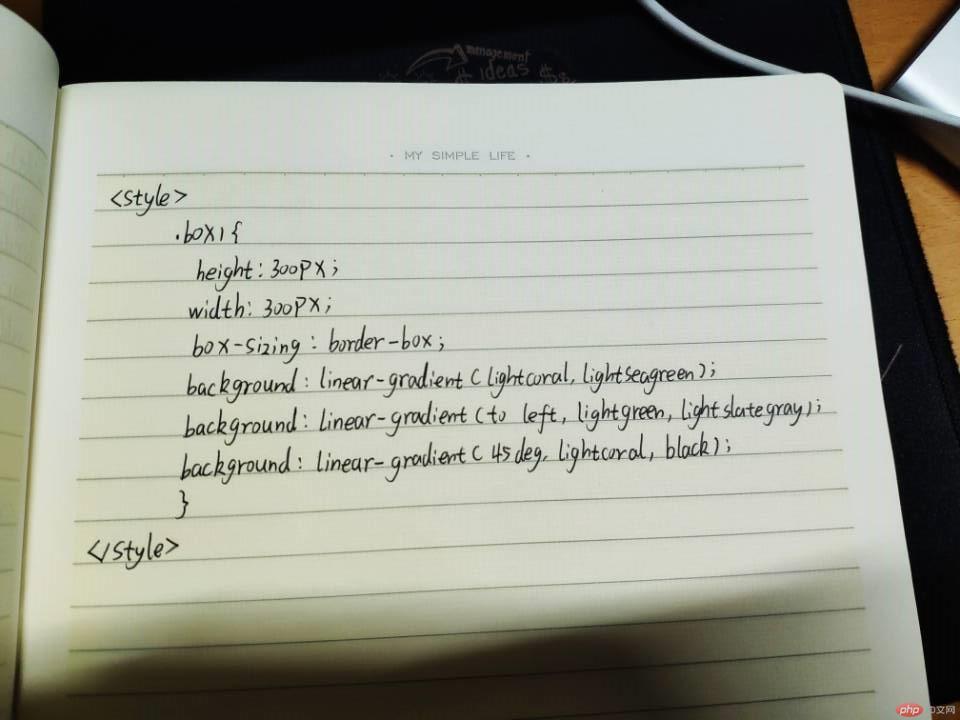 management
ideas $$
· MY SIMPLE LIFE ·
<style>
.box1{
height: 300px;
width: 300px;
box-sizing: border-box;
background: linear-gradient(lightcoral, lightseagreen);
background: linear-gradient(to left, lightgreen, lightslategray);
background: linear-gradient(45deg, lightcoral, black);
}
</style>
php中文网